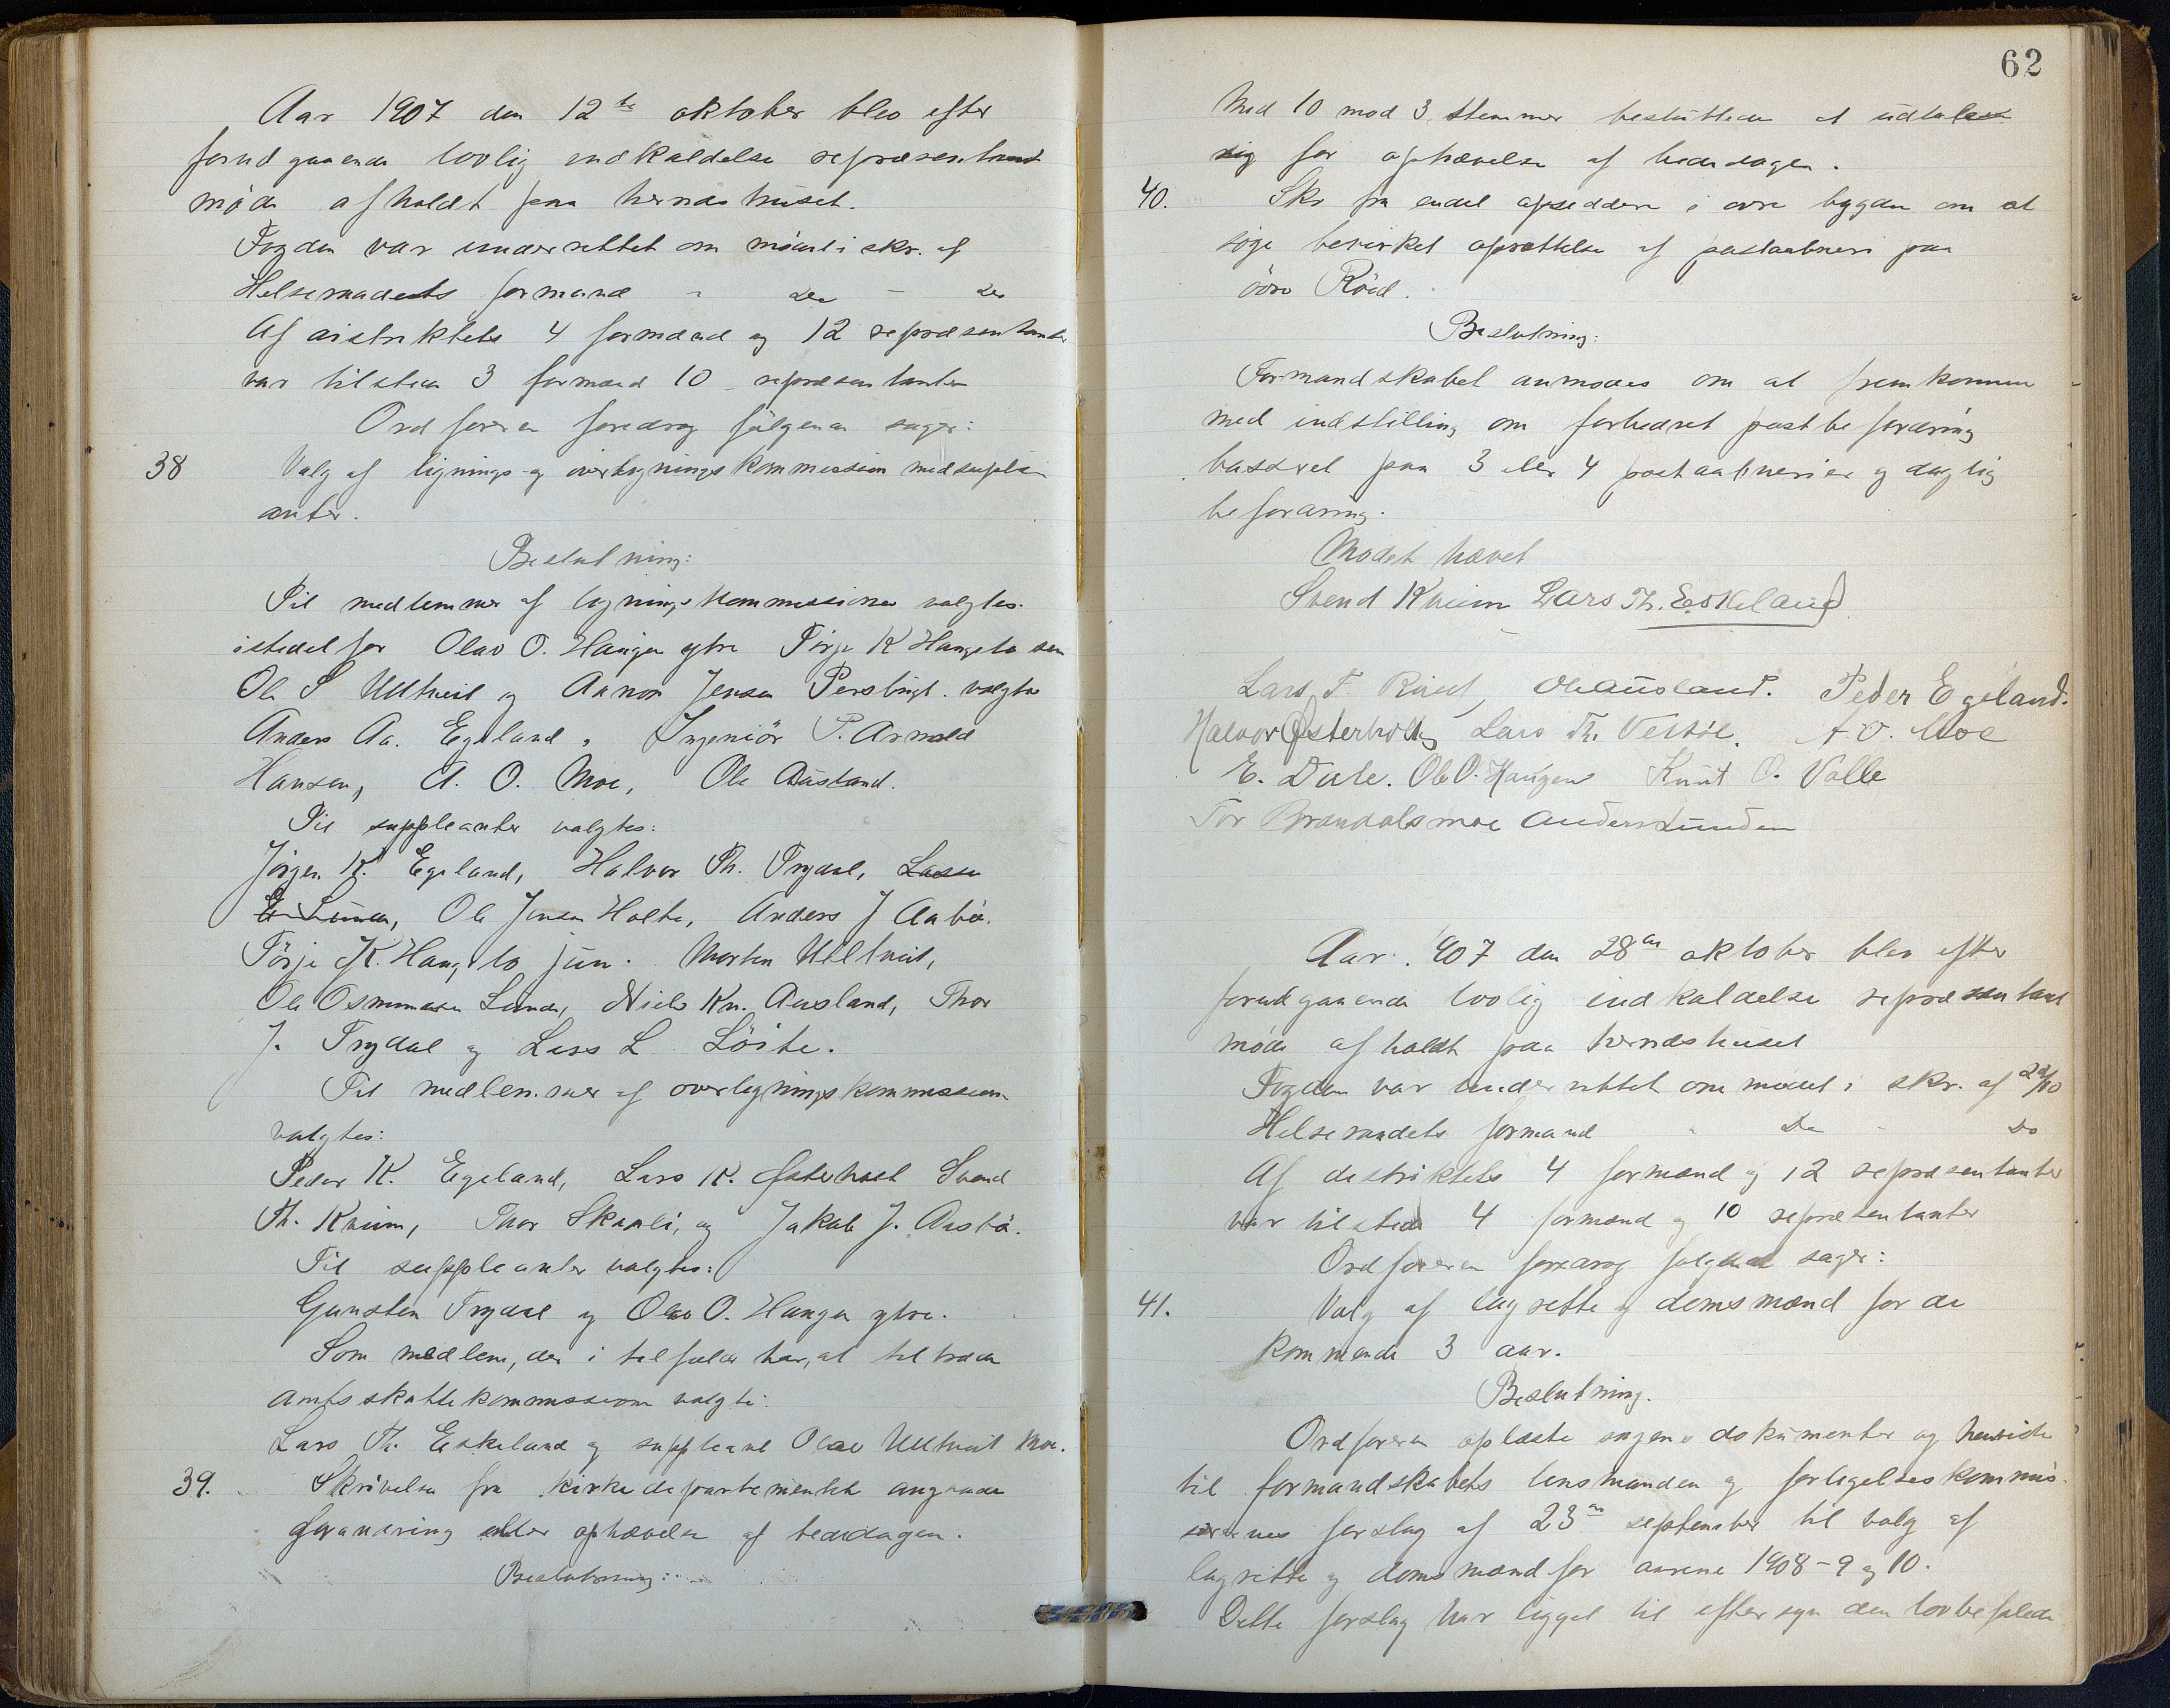 Aar 1907 den 12te oktober blev efter
forudgaaende lovlig endkaldelse repræsentant
møde afholdt paa herredshuset.
Fogden var underrettet om mødet i skr. af
Helseraadets formand " do — do
Af distriktets 4 formænd og 12 repræsentanter
var tilstede 3 formænd 10 repræsentanter
Ordføreren foredrog følgende sager:
38 Valg af lignings- og overligningskommission med suplei
anter.
Beslutning:
Til medlemmer af ligningskommissionen valgtes.
istedetfor Olav O. Haugen ytre Törje K Haugeto sen
Ole S Ulltveit og Aanon Jensen Persbugt. valgtes
Anders Aa. Egeland, Ingeniör P. Arnold
Hansen, A. O. Moe, Ole Ausland.
Til suppleanter valgtes:
Jörgen K. Egeland, Halvor Th. Trydal, Lasse
E Lunden, Ole Jensen Holte, Anders J Aabö.
Törje K. Haugeto jun. Morten Ulltveit,
Ole Osmundsen Lunde, Niels Kn. Ausland, Thor
J. Trydal og Lars L. Löite.
Til medlemmer af overligningskommission
valgtes:
Peder K. Egeland, Lars K. Østerholt Svend
Th. Kveim, Thor Skaali, og Jakob J. Aasbö.
Til suppleanter valgtes:
Gunsten Trydal og Olav O. Haugen ytre.
Som medlem, der i tilfælde har, at tiltræde
amtsskattekommission valgte:
Lars Th. Eskeland og suppleant Olav Ulltveit Moe.
39. Skrivelse fra kirkedepartementet angaaende
forandring eller ophævelse af bededagen.
Beslutning:
62
Med 10 mod 3 stemmer besluttede at udtale
sig for ophævelse af bededagen.
40. Skr fra endel opsiddere i øvre bygden om at
søge bevirket oprettelse af postaabneri paa
övre Röed.
Beslutning:
Formandskabet anmodes om at fremkomme
med indstilling om forbedret postbefordring
basseret paa 3 eller 4 postaabnerier og daglig
befordring.
Mødet hævet
Svend Kveim Lars Th. Eskeland
Lars T. Ausland. Peder Egeland.
Halvor Østerholt, Lars Th. Vestöl. A. O. Moe
E. Dale. Ole O. Haugen Knut O. Valle
Tor Brandalsmoe Anders Lunden
Aar 1907 den 28de oktober blev efter
forudgaaende lovlig indkaldelse repræsentant
møde afholdt paa herredshuset
Fogden var underrettet om mødet i skr. af 22/10
Helseraadets formand " do - do
Af distriktets 4 formænd og 12 repræsentanter
var tilstede 4 formænd og 10 repræsentanter
Ordføreren foredrog følgende sager:
41. Valg af lagrette og domsmænd for de
kommende 3 aar.
Beslutning.
Ordføreren oplæste sagens dokumenter og henviste
til formandskabets lensmanden og forligelseskommis
særernes forslag af 23de september til valg af
lagrette og domsmænd for aarene 1908-9 og 10.
Dette forslag har ligget til eftersyn den lovbefalede